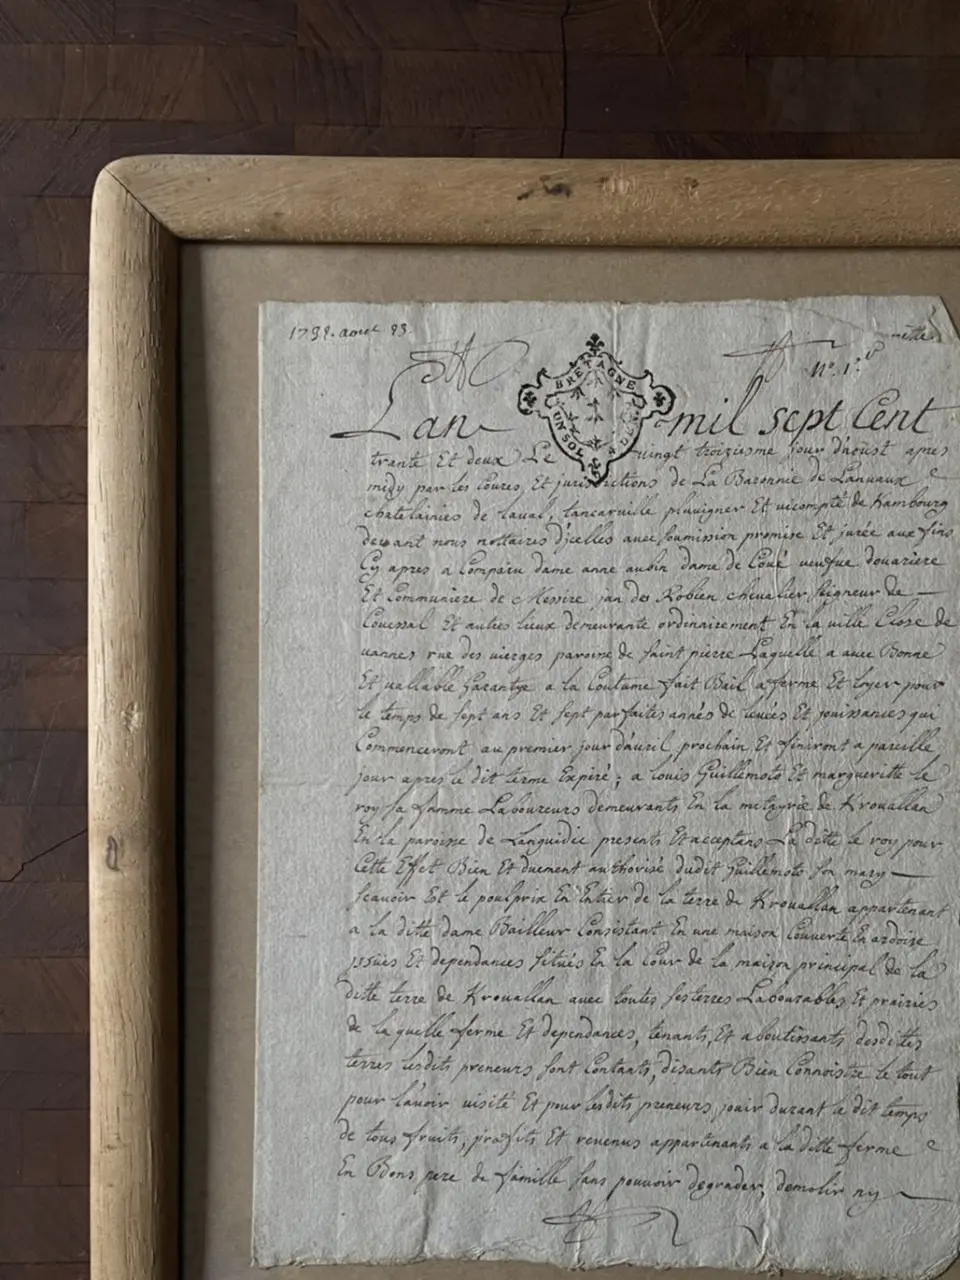 1732. aout 23.
N.º 1.er
BRETAGNE
UN SOL
Lan mil sept Cent
trante Et deux Le vingt troizieme jour d'aoust apres
midy par les Cours Et jurisdictions de La Baronnie de Lanvaux
chatelainies de laval, lancarville pluvigner Et vicompté de Kambourg
devant nous nottaires d'jcelles avec soumission promise Et jurée aux fins
Cy apres a Comparu dame anne aubin dame de Coué veufve douariere
Et Communiere de Messire jan des Robien chevalier, seigneur de
Couessal Et autres lieux demeurante ordinairement En la ville Close de
vannes rue des vierges paroise de saint pierre Laquelle a avec Bonne
Et vallable Garantye a la Coutume fait Bail a ferme Et loyer pour
le temps de sept ans Et sept parfaites annés de levées Et jouissances qui
Commenceront au premier jour d'avril prochain Et finiront a pareille
jour apres le dit terme Expiré; a louis Guillemoto Et margueritte le
roy sa famme Laboureurs demeurants En la metayrie de Krouallan
En la paroisse de Languidic presents Et acceptans La ditte le roy pour
Cette Effet Bien Et duement authorisé dudit Guillemoto son mary
scavoir Est le pourprix En Entier de la terre de Krouallan appartenant
a la ditte dame Bailleur Consistant En une maison Couverte En ardoise
jssües Et dependances situés En la Cour de la maison principal de la
ditte terre de Krouallan avec toutes ses terres Labourables Et prairies
de la quelle ferme Et dependances, tenants, Et aboutissants desdittes
terres lesdits preneurs sont Contants, disants Bien Connoistre le tout
pour l'avoir visité Et pour lesdits preneurs jouir durant le dit temps
de tous fruits, profits Et revenus appartenants a la ditte ferme
En Bons pere de famille sans pouvoir degrader, demolir ny